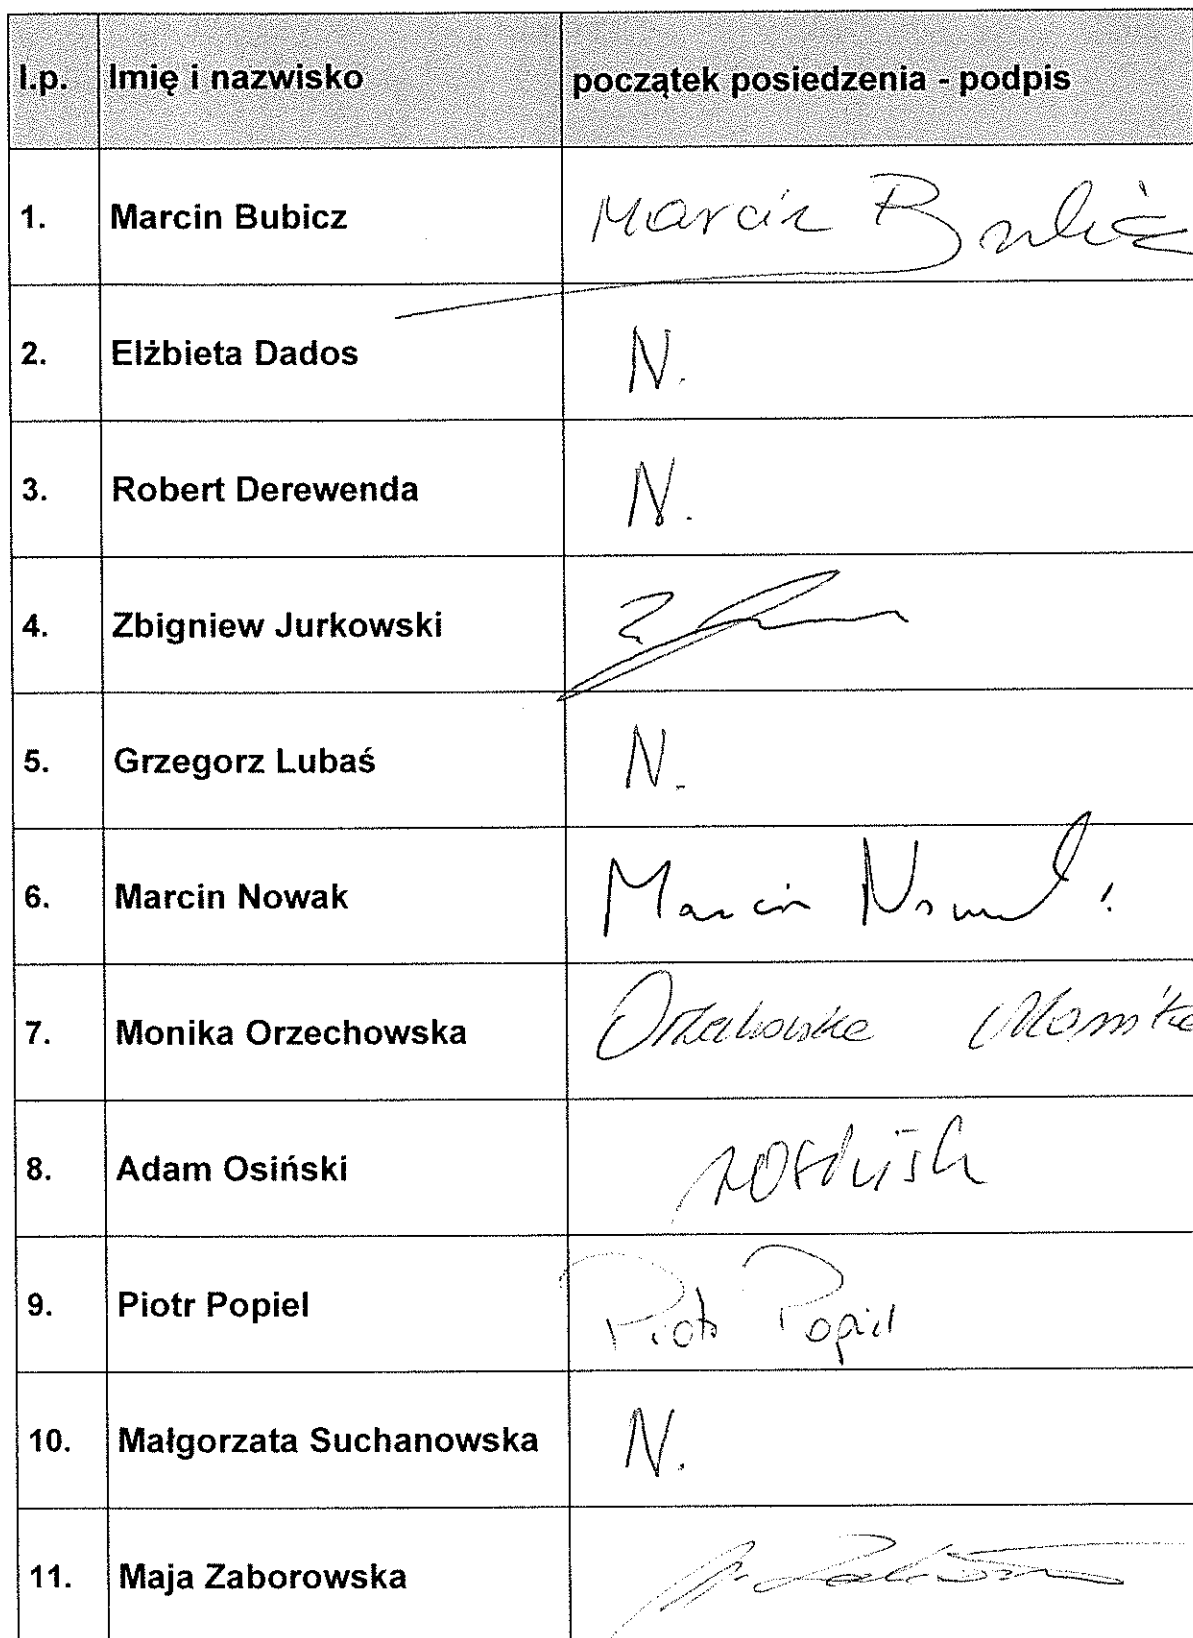 l.p. Imię i nazwisko początek posiedzenia - podpis
1. Marcin Bubicz Marcin Bubicz
2. Elżbieta Dados N.
3. Robert Derewenda N.
4. Zbigniew Jurkowski
5. Grzegorz Lubaś N.
6. Marcin Nowak Marcin Nowak
7. Monika Orzechowska Orzechowska Monika
8. Adam Osiński
9. Piotr Popiel Piotr Popiel
10. Małgorzata Suchanowska N.
11. Maja Zaborowska